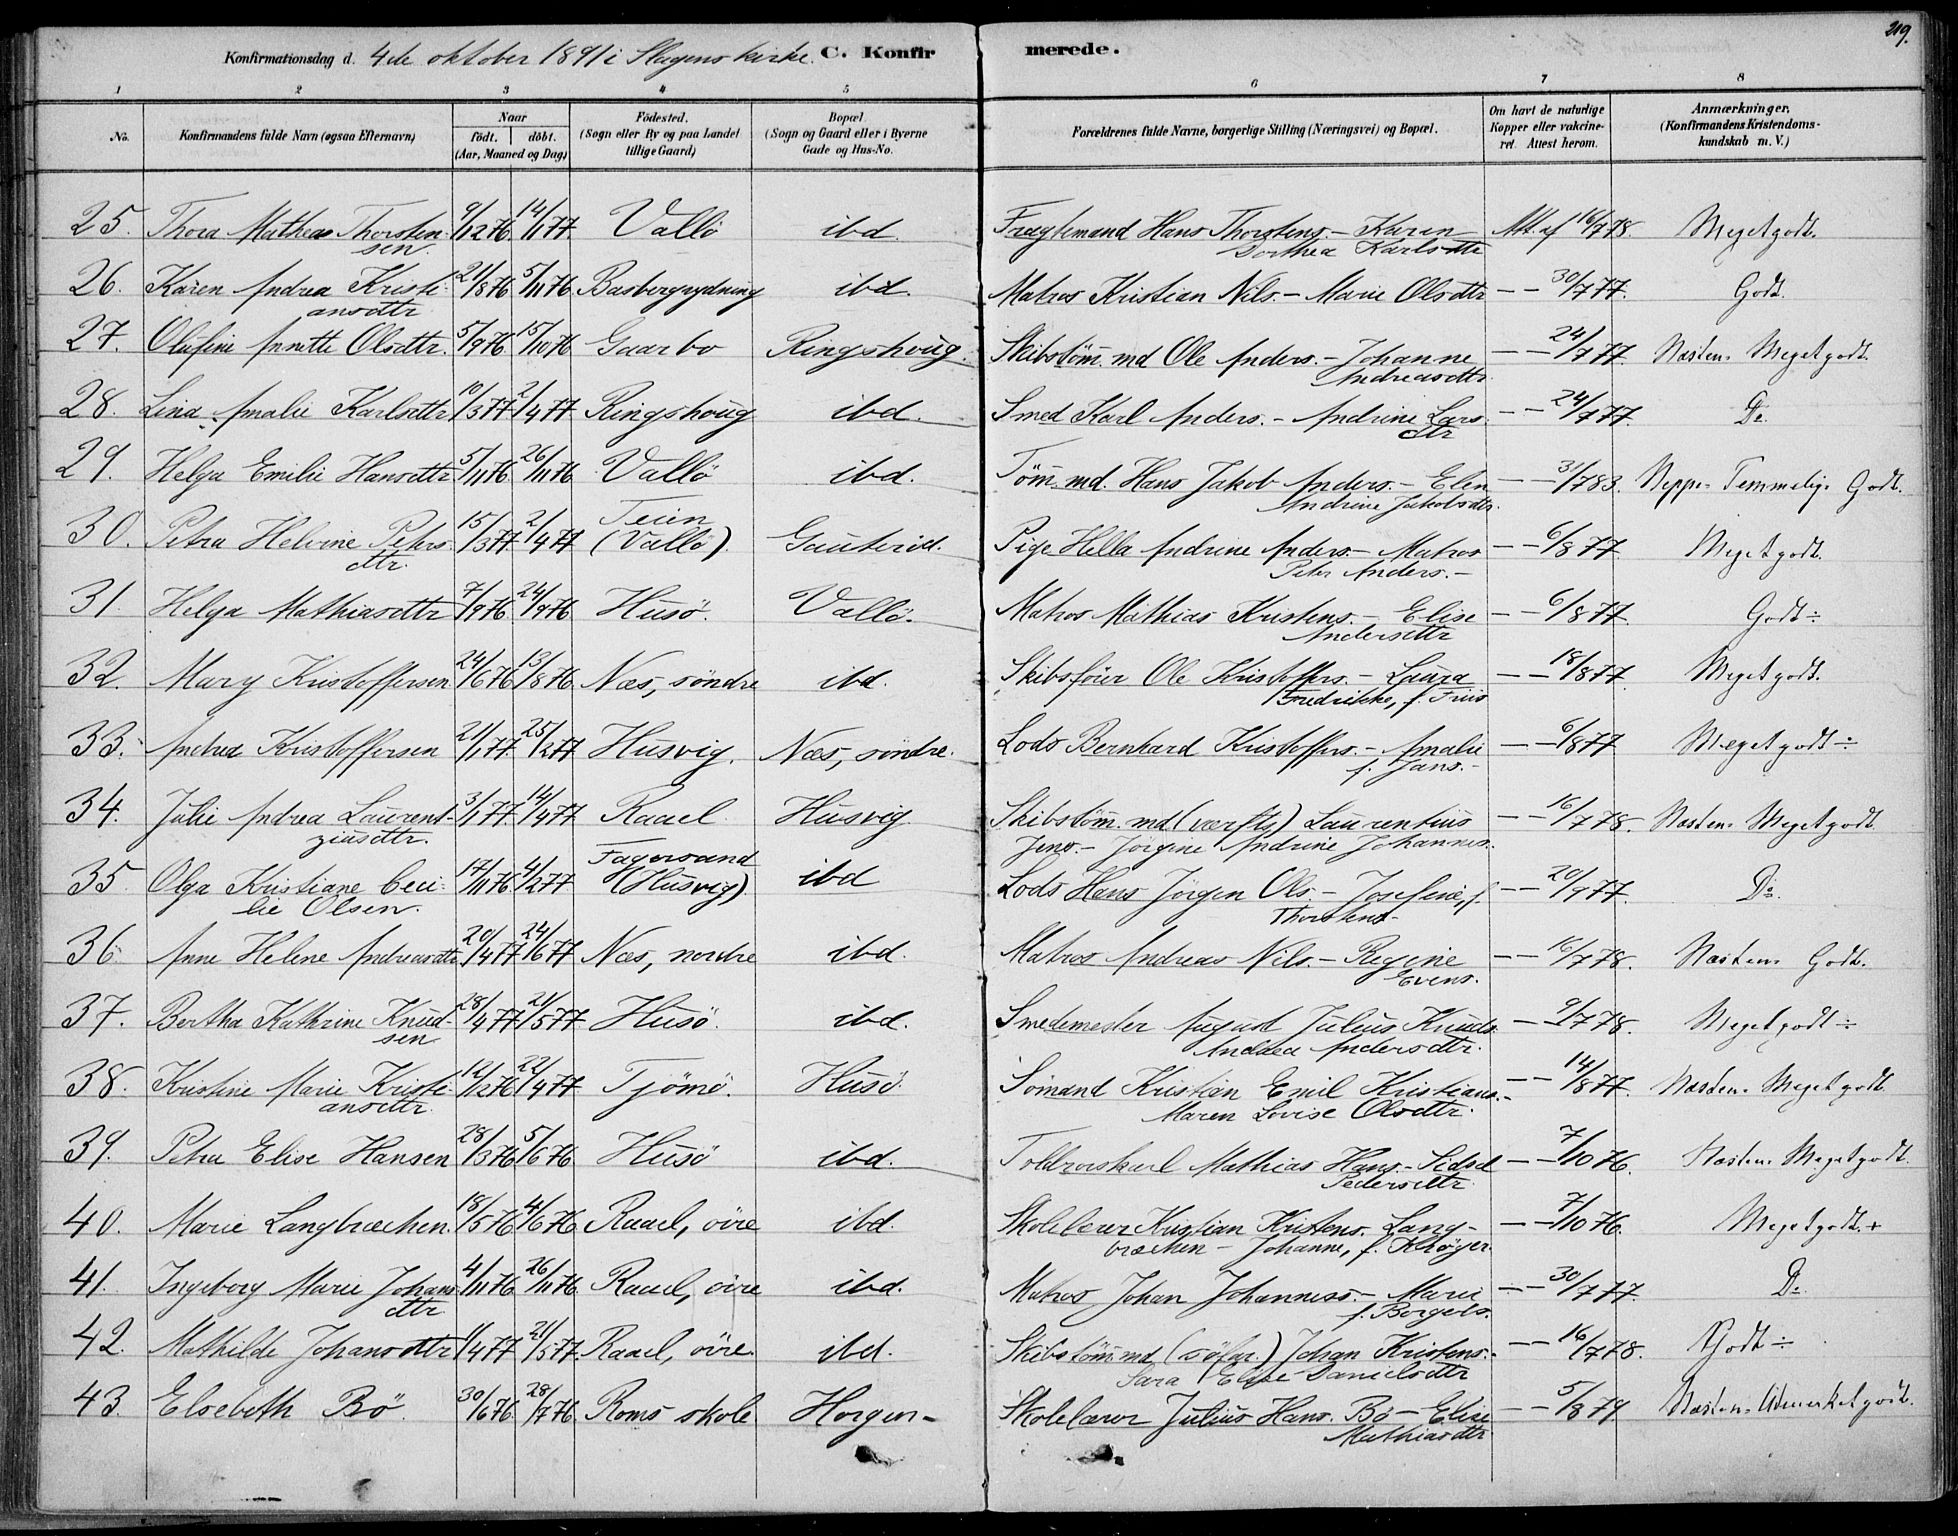 219.
Konfirmationsdag d. 4de oktober 1891 i Slagens kirke. C. Konfirmerede.
1 2 3 4 5 6 7 8
No. Konfirmandens fulde Navn (ogsaa Efternavn) Naar födt. döbt. (Aar, Maaned og Dag) Födested. (Sogn eller By og paa Landet tillige Gaard) Bopæl. (Sogn og Gaard eller i Byerne Gade og Hus-No. Forældrenes fulde Navne, borgerlige Stilling (Næringsvei) og Bopæl. Om havt de naturlige Kopper eller vakcineret. Attest herom. Anmærkninger. (Konfirmandens Kristendomskundskab m. V.)
25. Thora Mathea Thorstensen 9/12 76 14/1 77 Vallö ibd. Fragtemand Hans Thorstens. – Karen Dorthea Karlsdtr Att. af 16/9 78. Meget godt.
26. Karen Andrea Kristiansdtr 21/8 76 5/11 76 Basbergrydning ibd. Matros Kristian Nils. – Marie Olsdtr – – 30/7 77. Godt.
27. Olufine Annette Olsdtr. 5/9 76 15/10 76 Gaarbo Ringshoug. Skibstøm. md Ole Anders. – Johanne Andreasdtr. – – 24/7 77. Næsten Meget godt.
28. Lina Amalie Karlsdtr 10/3 77 2/4 77 Ringshoug ibd. Smed Karl Anders. – Andrine Larsdtr – – 24/7 77. Do.
29. Helga Emilie Hansdtr 5/11 76 26/11 76 Vallö ibd. Tøm. md. Hans Jakob Anders. – Elen Andrine Jakobsdtr. – – 31/7 83. Neppe Temmelig Godt.
30. Petra Helvine Petersdtr. 15/3 77 2/4 77 Teien (Vallö). Gauterød. Pige Hella Andrine Anders. – Matros Peter Anders. – – – 6/8 77. Meget godt.
31. Helga Mathiasdtr 7/9 76 24/9 76 Husö. Vallö. Matros Mathias Kristens. – Elise Andersdtr – – 6/8 77. Godt ÷
32. Mary Kristoffersen 24/6 76 13/8 76 Næs, söndre ibd. Skibsförer Ole Kristoffers. – Laura Fredrikke, f. Friis – – 18/8 77. Meget godt.
33. Andrea Kristoffersen 21/1 77. 25/2 77 Husvig. Næs, söndre. Lods Bernhard Kristoffers. – Amalie f. Jans. – – – 6/8 77 Meget godt ÷
34. Julie Andrea Laurentziusdtr. 3/1 77. 14/4 77 Raael Husvig Skibstøm. md (værfts) Laurentius Jens. – Jörgine Andrine Johannes. – – 16/7 78. Næsten Meget godt
35 Olga Kristiane Cecilie Olsen. 17/11 76 4/2 77 Fagersand (Husvig). ibd Lods Hans Jörgen Ols. – Josefine, f. Thorstens – – – 20/9 77. Do.
36 Anne Helene Andreasdtr 20/4 77 24/6 77 Næs, nordre ibd. Matros Andreas Nils. – Regine Evens. – – 16/7 78. Næsten Godt.
37. Bertha Kathrine Knudsen 28/4 77 21/5 77 Husö. ibd. Smedemester August Julius Knuds. Andrea Andersdtr. – – 9/7 78. Meget godt ÷
38. Kristine Marie Kristiansdtr. 12/12 76 22/4 77 Tjömö. Husö. Sömand Kristian Emil Kristians. – Maren Lovise Olsdtr. – – 14/8 77. Næsten Meget godt
39. Petra Elise Hansen 28/3 76 5/6 76 Husö ibd. Toldrorskarl Mathias Hans. – Sidsel Pedersdtr. – – 7/10 76. Næsten Meget godt.
40. Marie Langbræchen. 18/5 76 4/6 76 Raael, övre ibd. Skolelærer Kristian Kristens. Langbræchen – Johanne, f. Kröyer. – – 7/10 76. Meget godt. +
41. Ingeborg Marie Johansdtr 4/11 76 26/11 76 Raael, övre ibd. Matros Johan Johanness. – Marie f. Borgels. – – 30/7 77. Do.
42. Mathilde Johansdtr 1/4 77 21/5 77. Raael, övre. ibd. Skibstøm. md (söfar.) Johan Kristens. – Sara Elise Danielsdtr – – 16/7 78. Godt ÷
43. Elsebeth Bö. 30/6 76. 28/7 76. Roms skole Horgen – Skolelærer Julius Hans. Bö – Elise Mathiasdtr – – 5/8 79 Næsten Udmerket godt.